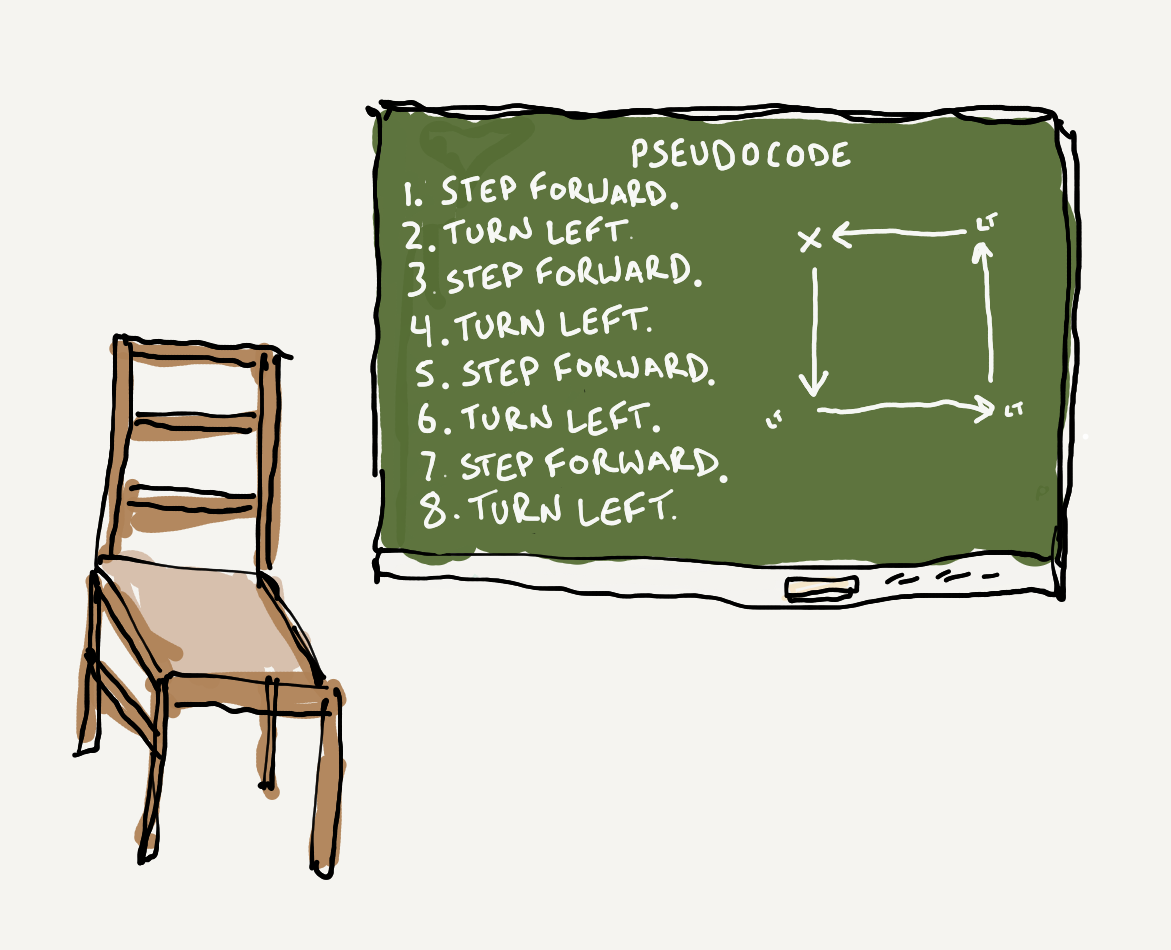 PSEUDOCODE
1. STEP FORWARD.
2. TURN LEFT.
3. STEP FORWARD.
4. TURN LEFT.
5. STEP FORWARD.
6. TURN LEFT.
7. STEP FORWARD.
8. TURN LEFT.
X
LT
LT
LT
P